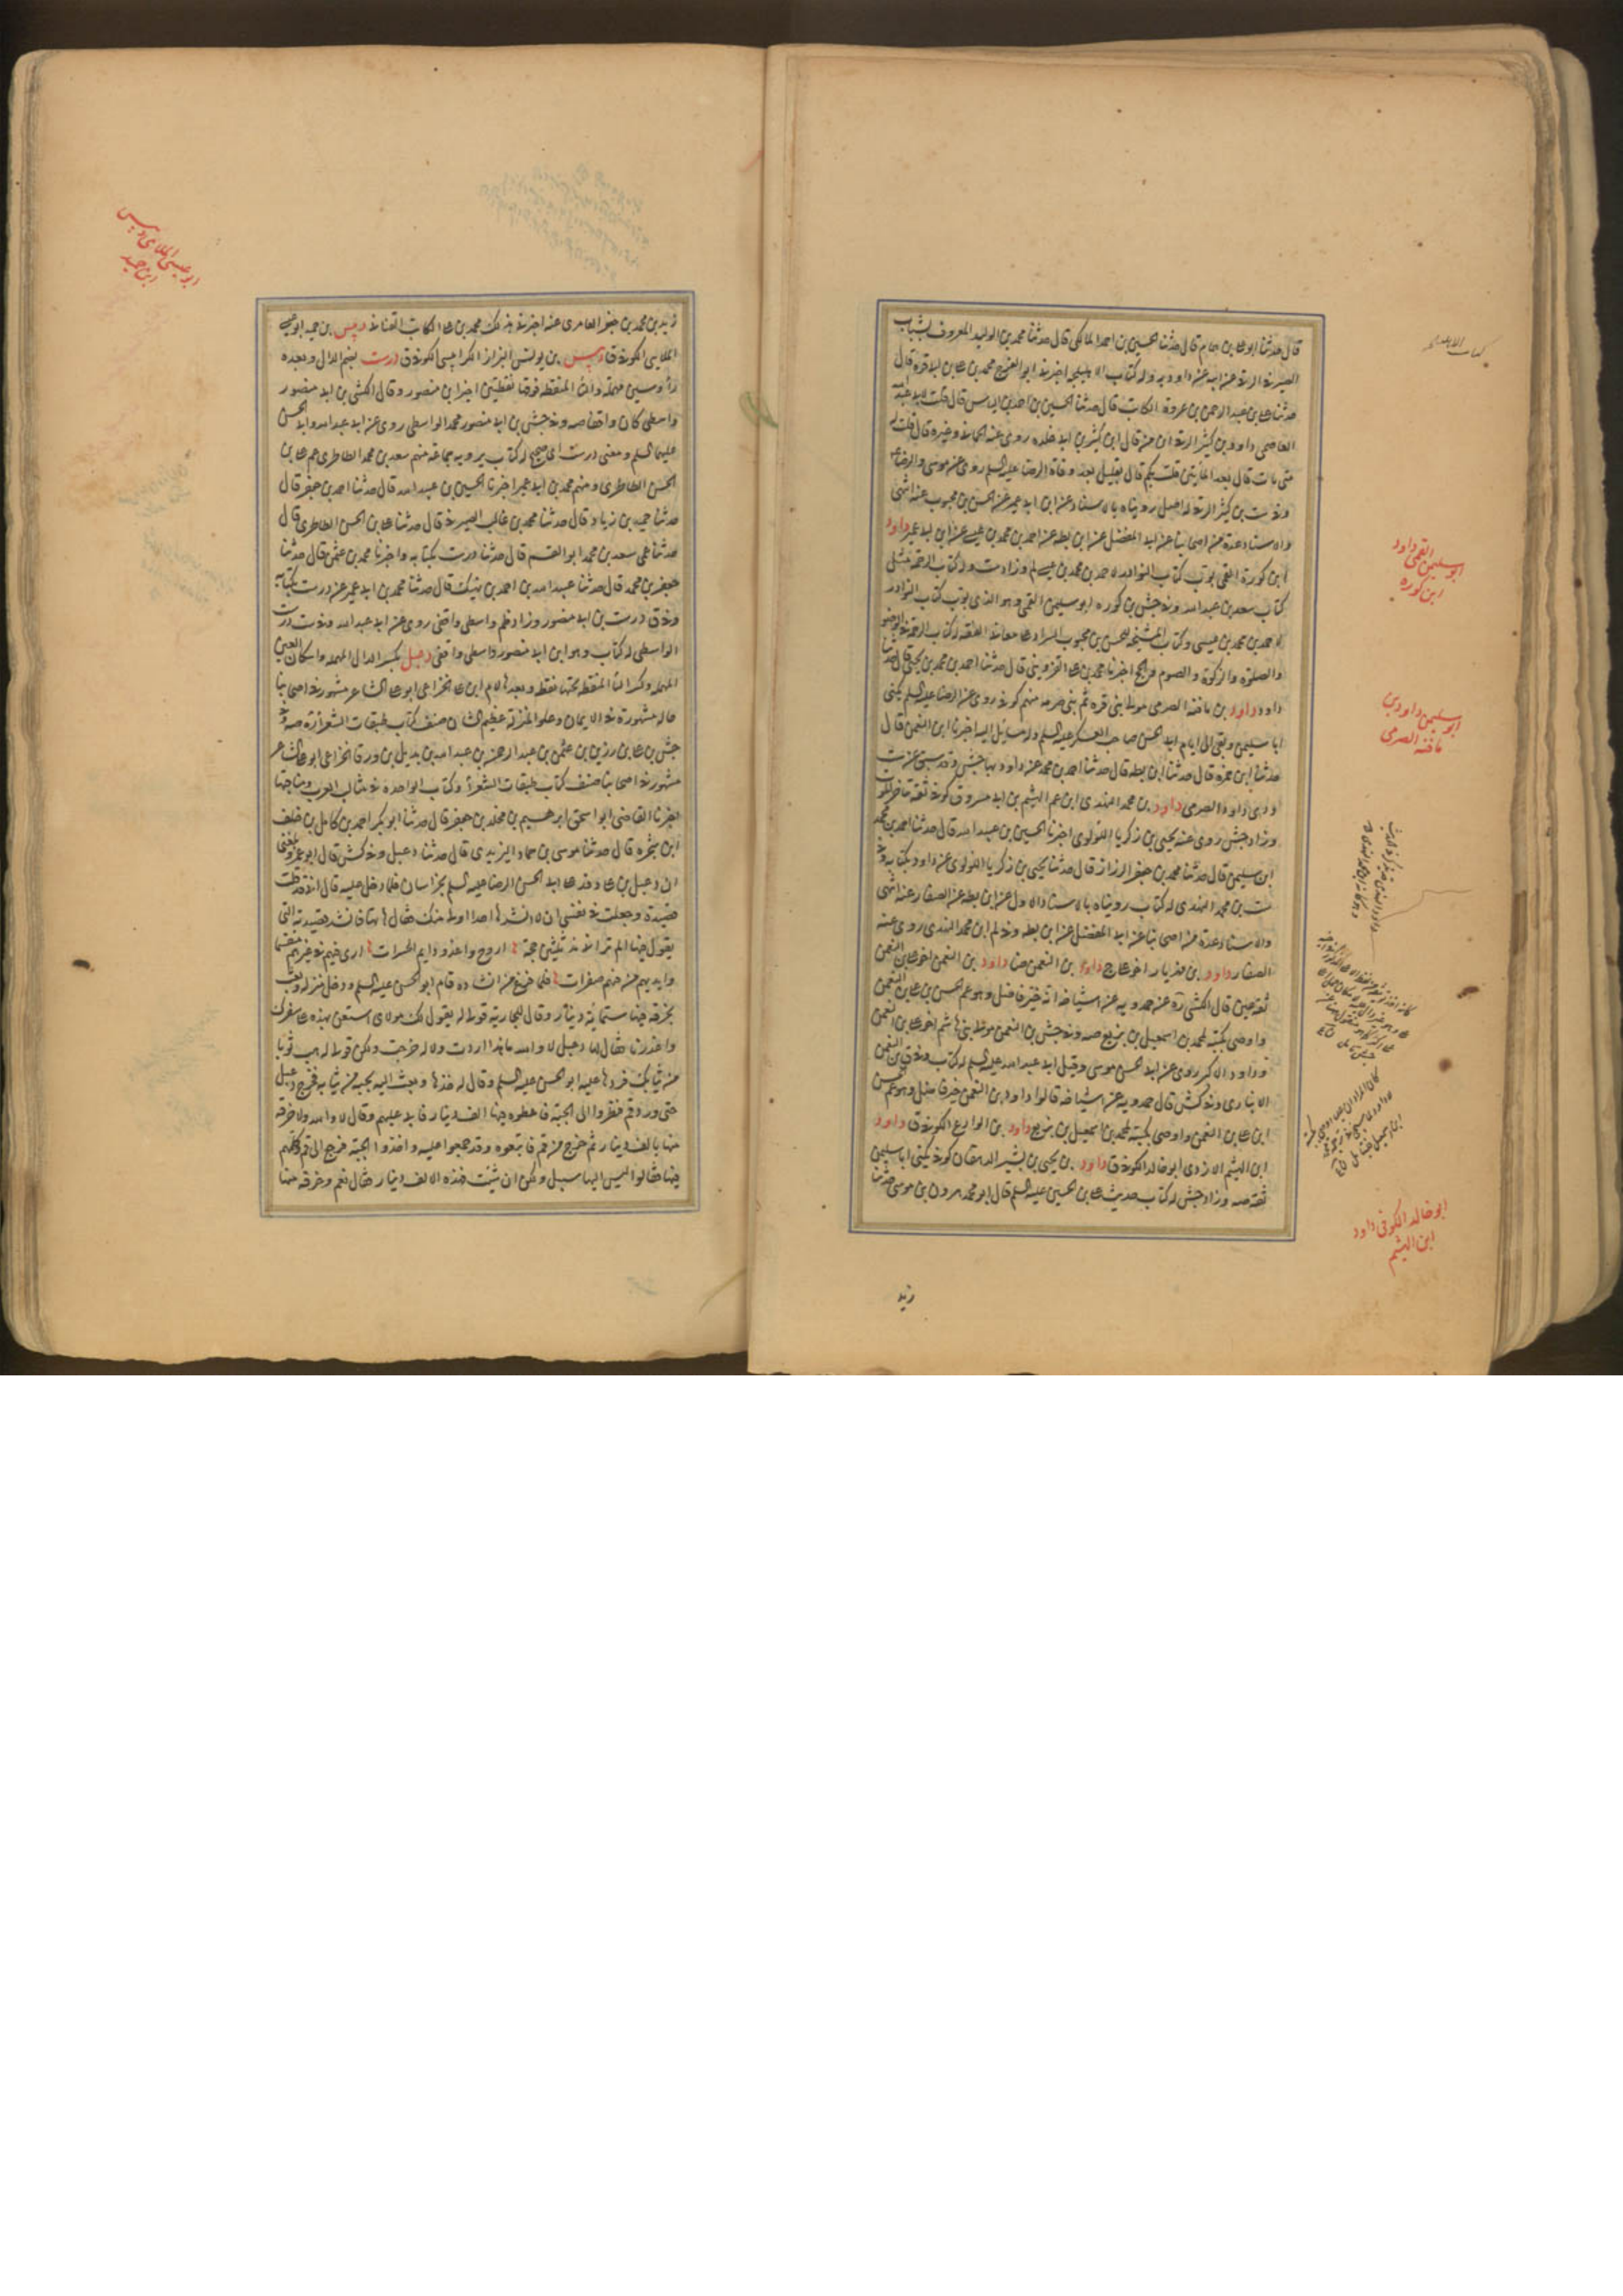 قال حدثنا ابو علي بن همام قال حدثنا الحسين بن احمد المالكي قال حدثنا محمد بن الوليد المعروف بشباب
الصيرفي الرقي عن ابيه عن داود به وله كتاب الاهليلجة اخبرني ابو الفرج محمد بن علي بن ابي قرة قال
حدثنا علي بن عبد الرحمن بن عروة الكاتب قال حدثنا الحسين بن احمد بن الياس قال قلت لابي عبد الله
العاصمي داود بن كثير الرقي ابن من قال ابن كثير بن ابي خلدة روى عنه الحماني وغيره قال قلت له
متى مات قال بعد المأتين قلت بكم قال بقليل بعد وفاة الرضا عليه السلم روى عن موسى والرضا
وفي ست بن كثير الرقي له اصل رويناه بالاسناد عن ابن ابي عمير عن الحسن بن محبوب عنه انتهى
والاسناد عدة من اصحابنا عن ابي المفضل عن ابن بطة عن احمد بن محمد بن عيسى عن ابن ابي عمير داود
ابن كورة القمي بوب كتاب النوادر لاحمد بن محمد بن عيسى لم وزاد ست وله كتاب الرحمة مثل
كتاب سعد بن عبد الله وفي جش بن كورة ابو سليمن القمي وهو الذي بوب كتاب النوادر
لاحمد بن محمد بن عيسى وكتاب المشيخة للحسن بن محبوب السراد على معاني الفقه له كتاب الرحمة في الوضوء
والصلوة والزكوة والصوم والحج اخبرنا محمد بن علي القزويني قال حدثنا احمد بن محمد بن يحيى قال حدثنا
داود داود بن مافنة الصرمي مولى بني قرة ثم بني صرمة منهم كوفي روى عن الرضا عليه السلم يكنى
ابا سليمن وبقي الى ايام ابي الحسن صاحب العسكر عليه السلم وله مسائل اليه اخبرنا ابن النعمن قال
حدثنا ابن حمزة قال حدثنا ابن بطة قال حدثنا احمد بن محمد عن داود بها جش وقد سبق عن ست
ودي داود الصرمي داود بن محمد النهدي ابن عم الهيثم بن ابي مسروق كوفي ثقة متاخر الموت
وزاد جش روى عنه يحيى بن زكريا اللؤلؤي اخبرنا الحسين بن عبيد الله قال حدثنا احمد بن محمد
ابن سليمن قال حدثنا محمد بن جعفر الرزاز قال حدثنا يحيى بن زكريا اللؤلؤي عن داود بكتابه وفي
ست بن محمد النهدي له كتاب رويناه بالاسناد الاول عن ابن بطة عن الصفار عنه انتهى
والاسناد عدة من اصحابنا عن ابي المفضل عن ابن بطة وفي لم ابن محمد النهدي روى عنه
الصفار داود بن مهزيار اخو علي ج داود بن النعمن ضا داود بن النعمن اخو علي بن النعمن
ثقة عين قال الكشي ره عن حمدويه عن اشياخه انه خير فاضل وهو عم الحسن بن علي بن النعمن
واوصى بكتبه لمحمد بن اسمعيل بن بزيع صه وفي جش بن النعمن مولى بني هاشم اخو علي بن النعمن
وداود الاكبر روى عن ابي الحسن موسى وقيل ابي عبد الله عليه السلم له كتاب وفي ق بن النعمن
الانباري وفي كش قال حمدويه عن اشياخه قالوا داود بن النعمن خير فاضل وهو عم الحسن
ابن علي بن النعمن واوصى بكتبه لمحمد بن اسمعيل بن بزيع داود بن الوارع الكوفي ق داود
ابن الهيثم الازدي ابو خالد الكوفي ق داود بن يحيى بن بشير الدهقان كوفي يكنى ابا سليمن
ثقة صه وزاد جش له كتاب حديث علي بن الحسين عليه السلم قال ابو محمد هرون بن موسى حدثنا
زيد
ابو سليمن القمي داود
ابن كورة
ابو سليمن داود بن
مافنه الصرمي
ابو خالد الكوفي داود
ابن الهيثم
زيد بن محمد بن جعفر العامري عنه اخبرني بذلك محمد بن علي الكاتب القناني دبيس بن حميد ابو عيسى
الملايي الكوفي ق دبيس بن يونس البزاز الكرابيسي الكوفي ق درست بضم الدال وبعده
راء وسين مهملة والتاء المنقطة فوقها نقطتين اخيرا بن منصور وقال الكشي بن ابي منصور
واسطي كان واقفا صه وفي جش بن ابي منصور محمد الواسطي روى عن ابي عبد الله وابي الحسن
عليهما السلم ومعنى درست اي صحيح له كتاب يرويه جماعة منهم سعد بن محمد الطاطري عم علي بن
الحسن الطاطري ومنهم محمد بن ابي عمير اخبرنا الحسين بن عبيد الله قال حدثنا احمد بن جعفر قال
حدثنا حميد بن زياد قال حدثنا محمد بن غالب الصيرفي قال حدثنا علي بن الحسن الطاطري قال
حدثنا عمي سعد بن محمد ابو القسم قال حدثنا درست بكتابه واخبرنا محمد بن عثمن قال حدثنا
جعفر بن محمد قال حدثنا عبيد الله بن احمد بن نهيك قال حدثنا محمد بن ابي عمير عن درست بكتابه
وفي ق درست بن ابي منصور وزاد في ظم واسطي واقفي روى عن ابي عبد الله وفي ست درست
الواسطي له كتاب وهو ابن ابي منصور واسطي واقفي دعبل بكسر الدال المهملة واسكان العين
المهملة وكسر الباء المنقطة تحتها نقطة وبعدها لام ابن علي الخزاعي ابو علي الشاعر مشهور في اصحابنا
حاله مشهورة في الايمان وعلو المنزلة عظيم الشان صنف كتاب طبقات الشعراء ره صه وفي
جش بن علي بن رزين بن عثمن بن عبد الرحمن بن عبد الله بن بديل بن ورقا الخزاعي ابو علي الشاعر
مشهور في اصحابنا صنف كتاب طبقات الشعراء وكتاب الواحدة في مثالب العرب ومناقبها
اخبرنا القاضي ابو اسحق ابرهيم بن مخلد بن جعفر قال حدثنا ابو بكر احمد بن كامل بن خلف
ابن شجرة قال حدثنا موسى بن حماد اليزيدي قال حدثنا دعبل وفي كش قال ابو عمرو بلغني
ان دعبل بن علي وفد على ابي الحسن الرضا عليه السلم بخراسان فلما دخل عليه قال اني قد قلت
قصيدة وجعلت في نفسي ان لا انشدها احدا اولى منك فقال هاتها فانشد قصيدته التي
يقول فيها الم تر اني مذ ثلثين حجة اروح واغدو دايم الحسرات ارى فيئهم في غيرهم متقسما
وايديهم من فيئهم صفرات فلما فرغ من انشاده قام ابو الحسن عليه السلم ودخل منزله وبعث
بخرقة فيها ستمائة دينار وقال للجارية قولي له يقول لك مولاي استعن بهذه على سفرك
واعذرنا فقال لها دعبل لا والله ما هذا اردت ولا له خرجت ولكن قولي له هب ثوبا
من ثيابك فردها عليه ابو الحسن عليه السلم وقال له خذها وبعث اليه بجبة من ثيابه فخرج دعبل
حتى ورد قم فنظروا الى الجبة فاعطوه فيها الف دينار فابى عليهم وقال لا والله ولا خرقة
منها بالف دينار ثم خرج من قم فاتبعوه وقد جمعوا عليه واخذوا الجبة فرجع الى قم وكلمهم
فيها فقالوا ليس اليها سبيل ولكن ان شئت فهذه الالف دينار فقال نعم وخرقة منها
ابو عيسى الملايي دبيس
ابن حميد